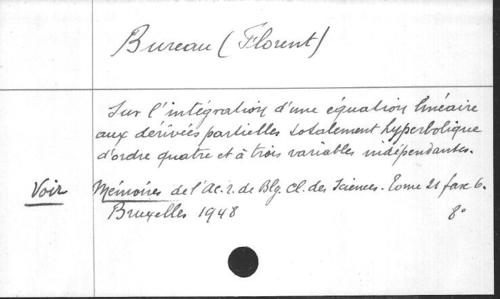 Bureau (Florent)
Sur l'intégration d'une équation linéaire
aux dérivées partielles totalement hyperbolique
d'ordre quatre et à trois variables indépendantes.
Voir Mémoires de l'Ac. r. de Blg. Cl. des Sciences. Tome 21 fasc 6.
Bruxelles 1948 8°